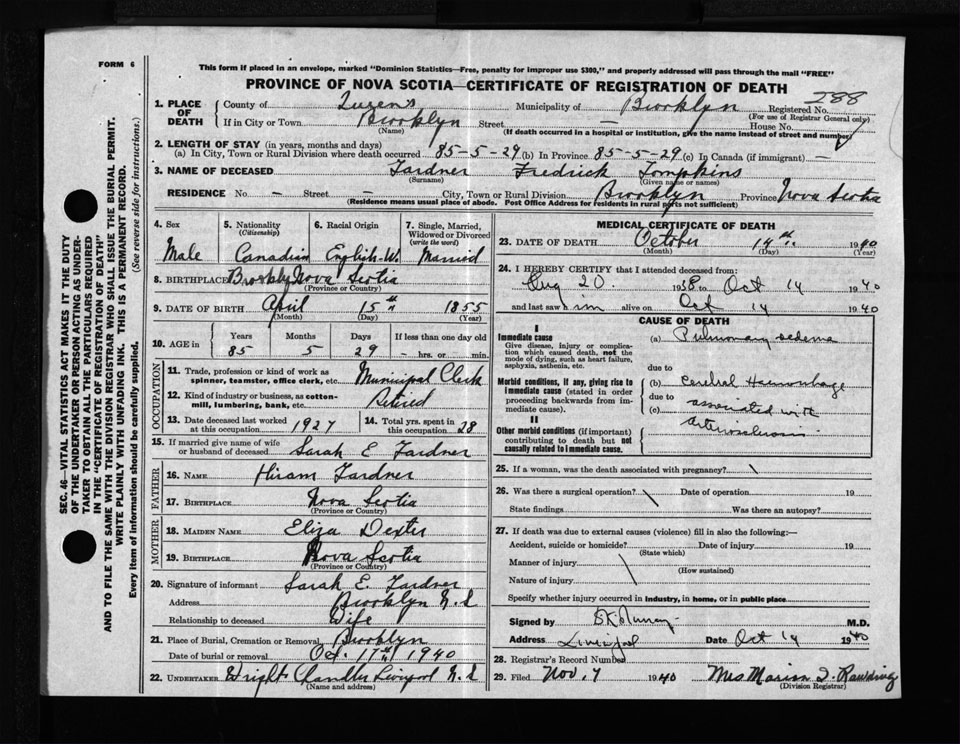 FORM 6
This form if placed in an envelope, marked "Dominion Statistics—Free, penalty for improper use $300," and properly addressed will pass through the mail "FREE"
PROVINCE OF NOVA SCOTIA—CERTIFICATE OF REGISTRATION OF DEATH
288
1. PLACE OF DEATH County of Queens Municipality of Brooklyn Registered No.
(For use of Registrar General only)
If in City or Town Brooklyn Street — House No.
(Name) (If death occurred in a hospital or institution, give the name instead of street and number)
2. LENGTH OF STAY (in years, months and days)
(a) In City, Town or Rural Division where death occurred 85-5-29 (b) In Province 85-5-29 (c) In Canada (if immigrant) —
3. NAME OF DECEASED Gardner Fredrick Tompkins
(Surname) (Given name or names)
RESIDENCE No. — Street — City, Town or Rural Division Brooklyn Province Nova Scotia
(Residence means usual place of abode. Post Office Address for residents in rural parts not sufficient)
4. Sex Male
5. Nationality (Citizenship) Canadian
6. Racial Origin English-W.
7. Single, Married, Widowed or Divorced (write the word) Married
8. BIRTHPLACE Brooklyn Nova Scotia
(Province or Country)
9. DATE OF BIRTH April 15th 1855
(Month) (Day) (Year)
10. AGE in Years Months Days If less than one day old
85 5 29 — hrs. or min.
OCCUPATION
11. Trade, profession or kind of work as spinner, teamster, office clerk, etc. Municipal Clerk
12. Kind of industry or business, as cotton-mill, lumbering, bank, etc. Retired
13. Date deceased last worked at this occupation 1927
14. Total yrs. spent in this occupation 28
15. If married give name of wife or husband of deceased Sarah E Gardner
FATHER
16. NAME Hiram Gardner
17. BIRTHPLACE Nova Scotia
(Province or Country)
MOTHER
18. MAIDEN NAME Eliza Dexter
19. BIRTHPLACE Nova Scotia
(Province or Country)
20. Signature of informant Sarah E. Gardner
Address Brooklyn N.S
Relationship to deceased Wife
21. Place of Burial, Cremation or Removal Brooklyn
Date of burial or removal Oct. 17th 1940
22. UNDERTAKER Wright Chandler Liverpool N.S
(Name and address)
MEDICAL CERTIFICATE OF DEATH
23. DATE OF DEATH October 14th. 1940
(Month) (Day) (Year)
24. I HEREBY CERTIFY that I attended deceased from:
Aug 20 1938 to Oct 14 1940
and last saw him alive on Oct 14 1940
CAUSE OF DEATH
I
Immediate cause
Give disease, injury or complication which caused death, not the mode of dying, such as heart failure, asphyxia, asthenia, etc.
(a) Pulmonary oedema
due to
Morbid conditions, if any, giving rise to immediate cause (stated in order proceeding backwards from immediate cause).
(b) Cerebral Haemorrhage
due to
(c) associated with
arteriosclerosis
II
Other morbid conditions (if important) contributing to death but not causally related to immediate cause.
25. If a woman, was the death associated with pregnancy? \
26. Was there a surgical operation? \ Date of operation 19
State findings Was there an autopsy?
27. If death was due to external causes (violence) fill in also the following:—
Accident, suicide or homicide? Date of injury 19
(State which)
Manner of injury
(How sustained)
Nature of injury
Specify whether injury occurred in industry, in home, or in public place
Signed by M.D.
Address Liverpool Date Oct 14 1940
28. Registrar's Record Number
29. Filed Nov. 7 1940 Mrs Marion
(Division Registrar)
SEC. 46—VITAL STATISTICS ACT MAKES IT THE DUTY
OF THE UNDERTAKER OR PERSON ACTING AS UNDER-
TAKER TO OBTAIN ALL THE PARTICULARS REQUIRED
IN THE "CERTIFICATE OF REGISTRATION OF DEATH"
AND TO FILE THE SAME WITH THE DIVISION REGISTRAR WHO SHALL ISSUE THE BURIAL PERMIT.
WRITE PLAINLY WITH UNFADING INK. THIS IS A PERMANENT RECORD.
Every item of information should be carefully supplied. (See reverse side for instructions.)